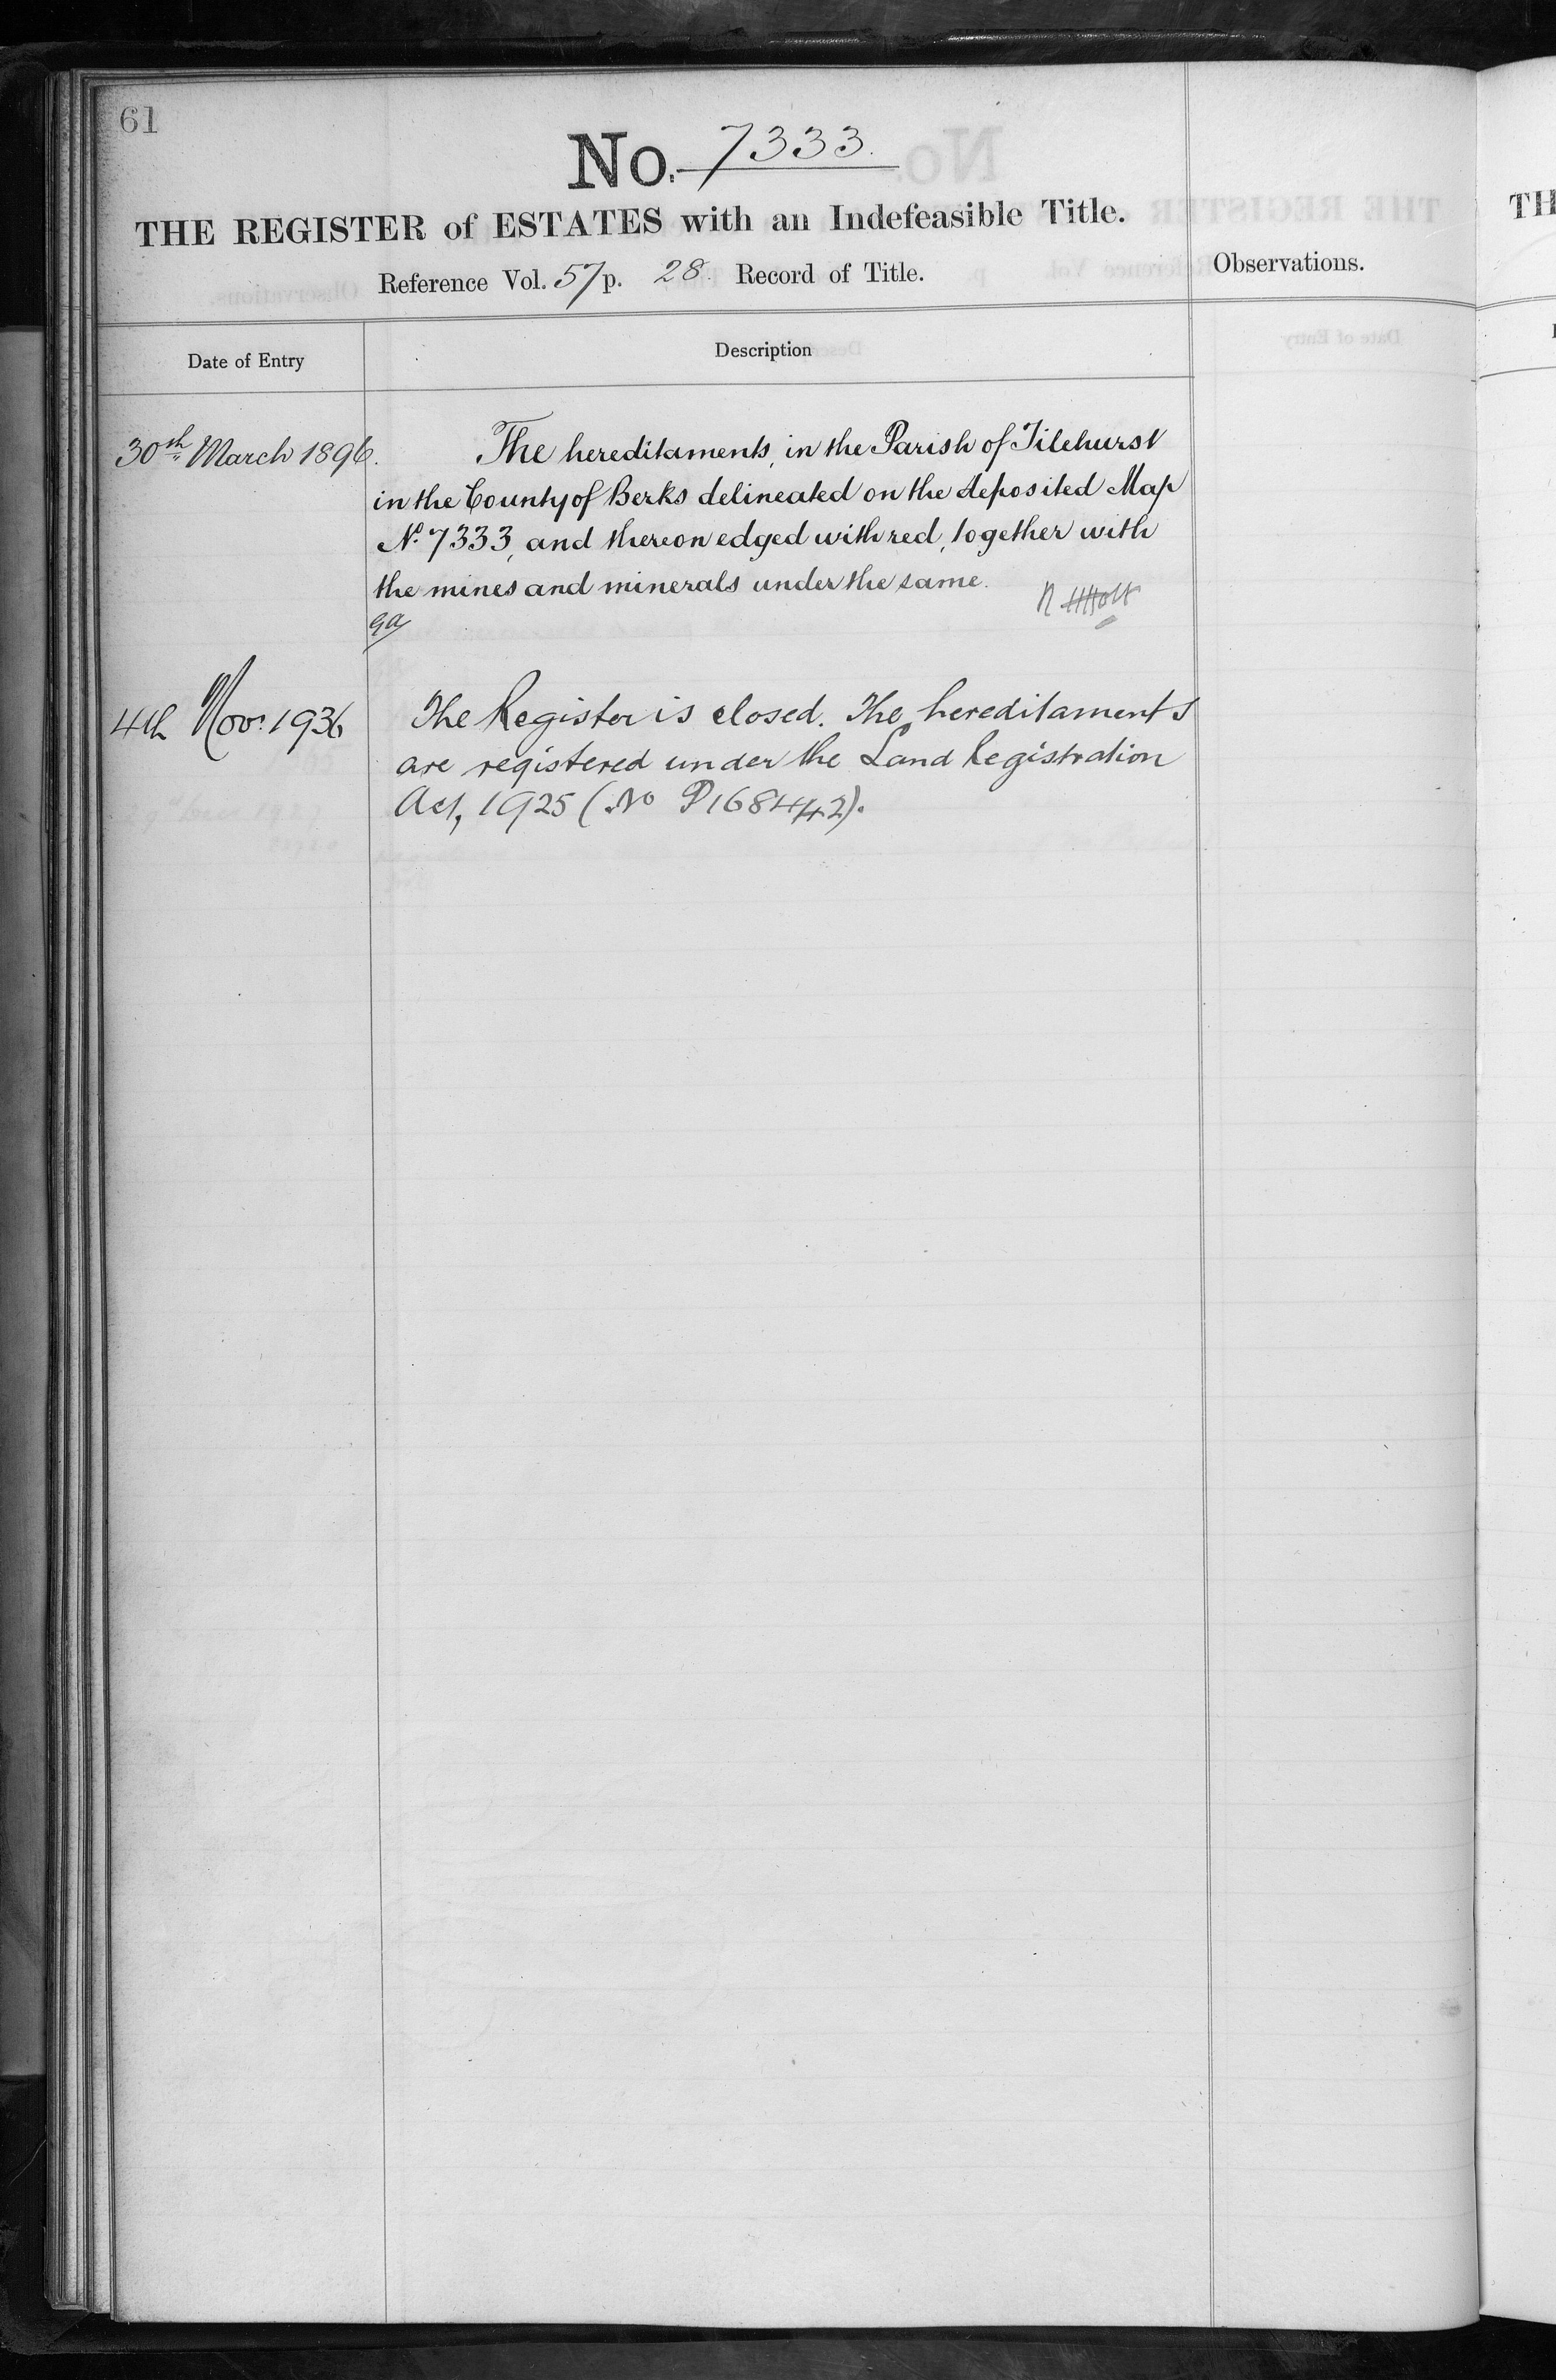 61
No. 7333.
THE REGISTER of ESTATES with an Indefeasible Title.
Reference Vol. 57 p. 28. Record of Title.
Observations.
Date of Entry
Description
30th March 1896.
The hereditaments, in the Parish of Tilehurst
in the County of Berks delineated on the deposited Map
No. 7333, and thereon edged with red, together with
the mines and minerals under the same.
4th Nov: 1936
The Register is closed. The hereditaments
are registered under the Land Registration
Act, 1925 (No P168442).
TH